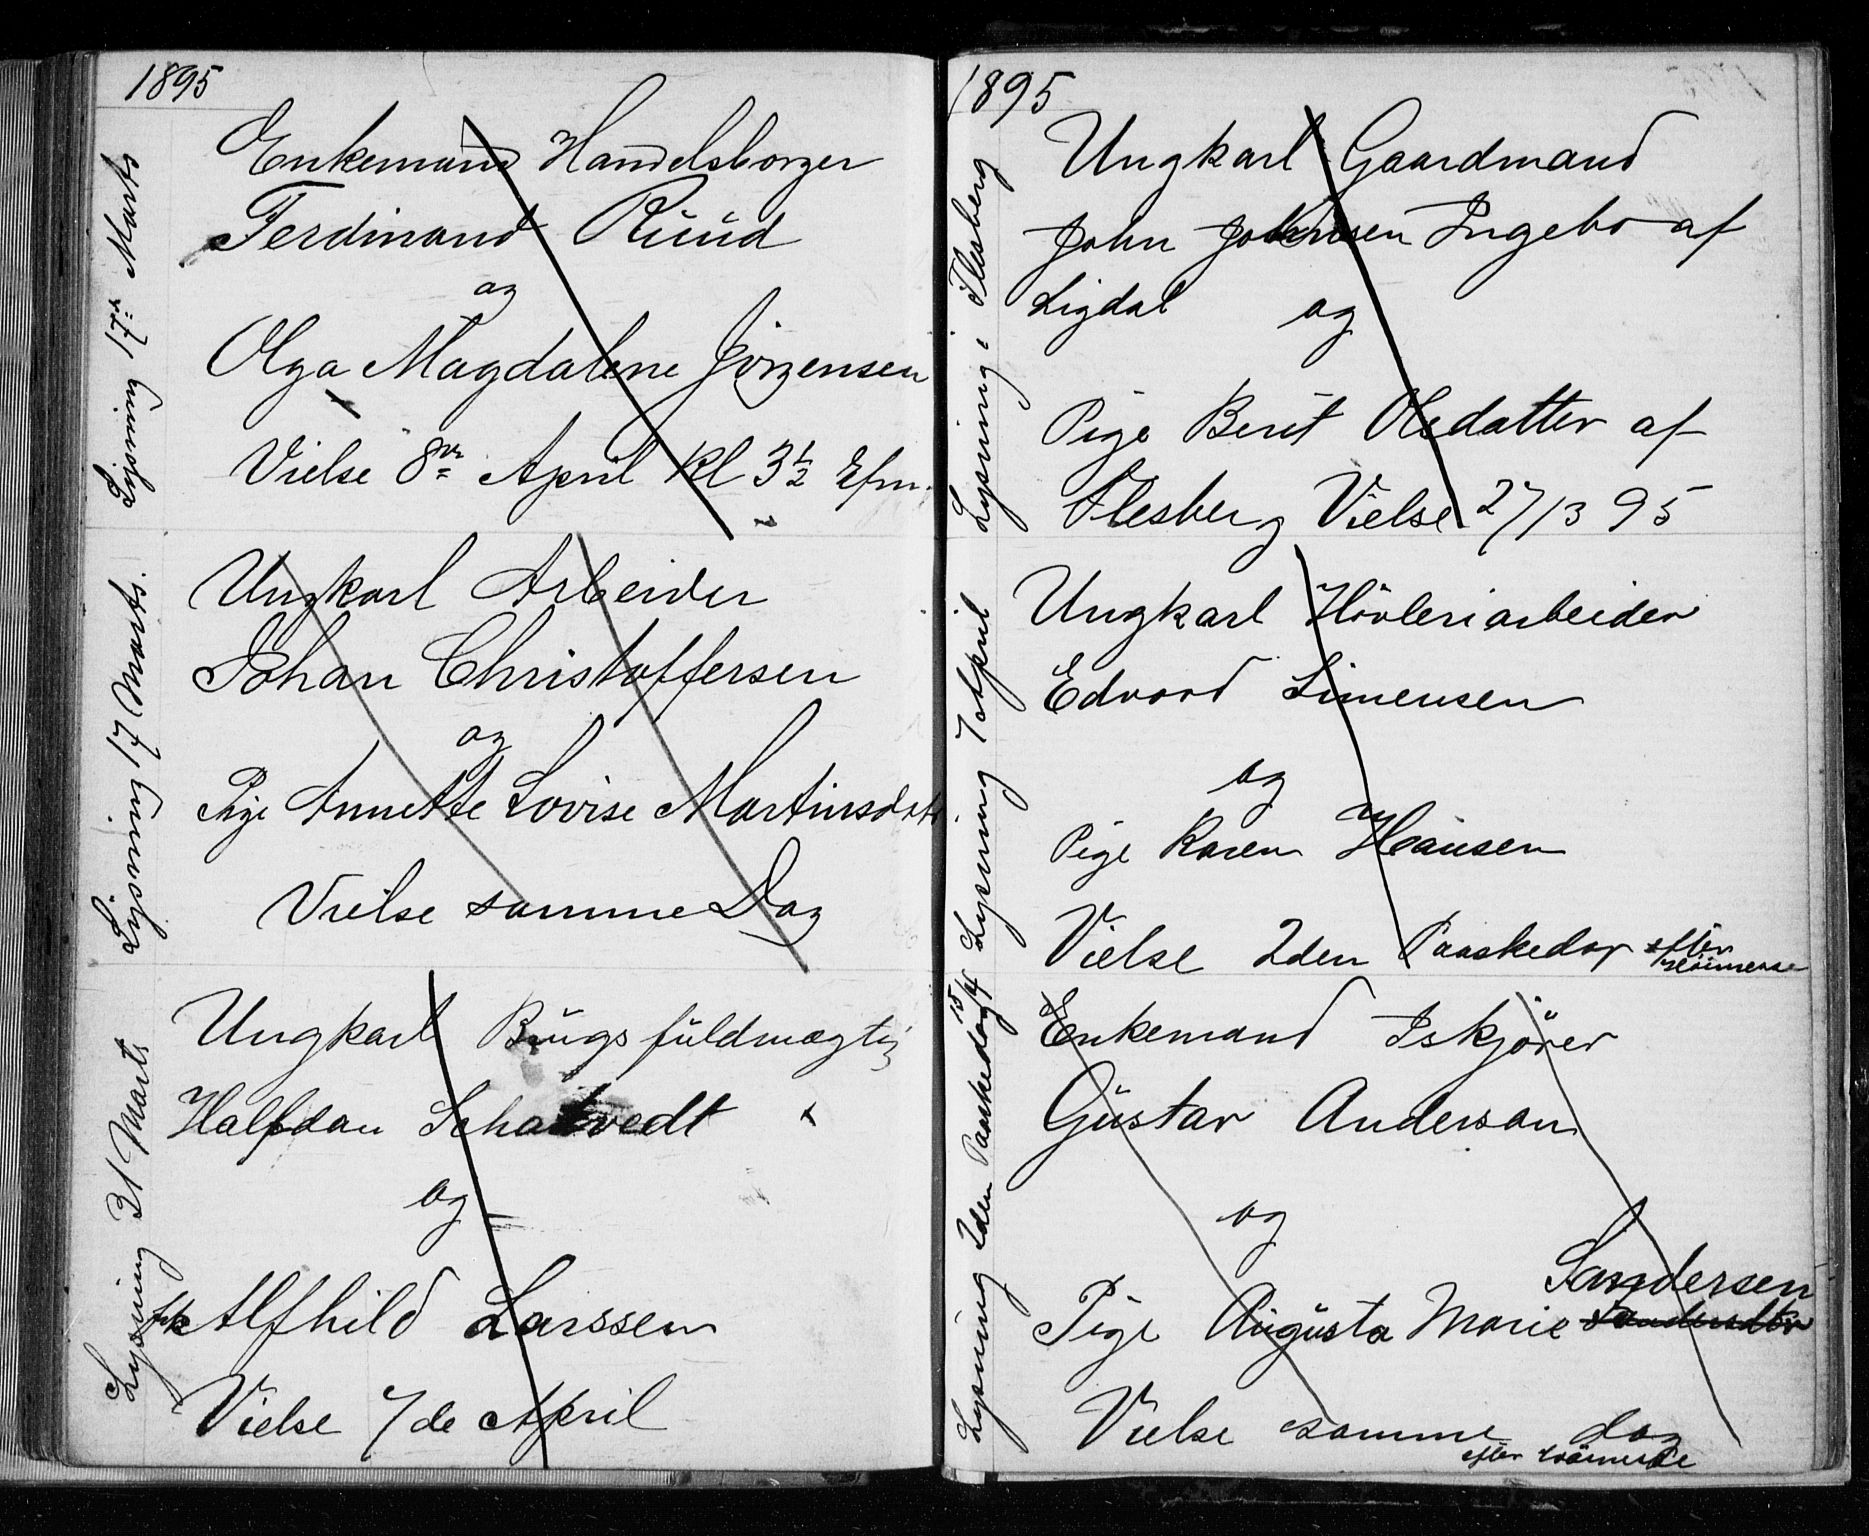 1895
Lysning 17de Marts
Enkemand Handelsborger
Ferdinand Ruud
og
Olga Magdalene Jörgensen
Vielse 8de April kl 3 1/2 Efm.
Lysning 17 Marts.
Ungkarl Arbeider
Johan Christoffersen
og
Pige Annette Lovise Martinsdatr
Vielse samme Dag
Lysning 31 Marts
Ungkarl Brugsfuldmægtig
Halfdan Schatvedt
og
frk Alfhild Larssen
Vielse 7de April
1895
Lysning i Flesberg
Ungkarl Gaardmand
John Johnsen Ingebo af
Sigdal og
Pige Berit Olsdatter af
Flesberg Vielse 27/3 95
Lysning 7 April
Ungkarl Hövleriarbeider
Edvard Simensen
og
Pige Karen Hansen
Vielse 2den Paaskedag efter
Höimesse
Lysning 2den Paaskedag 15/4
Enkemand Iskjörer
Gustav Anderson
og
Sandersen
Pige Augusta Marie Sandersdtr
Vielse samme dag
efter Höimesse